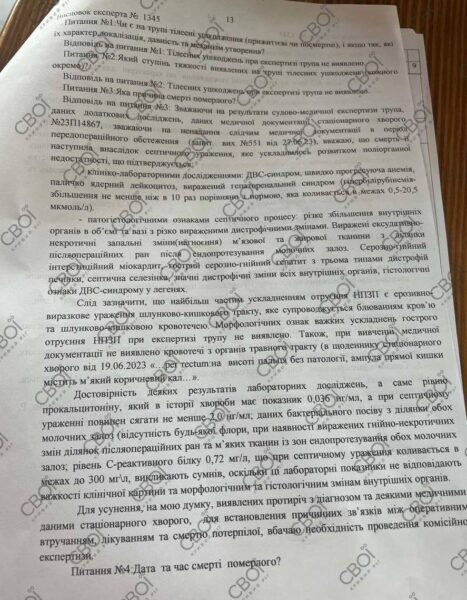 Висновок експерта № 1345
13
Питання №1:Чи є на трупі тілесні ушкодження (прижиттєві чи посмертні), і якщо так, які
їх характер, локалізація, давність та механізм утворення?
Відповідь на питання №1: Тілесних ушкоджень при експертизі трупа не виявлено.
Питання №2:Який ступінь тяжкості виявлених на трупі тілесних ушкоджень (кожного
окремо)?
Відповідь на питання №2: Тілесних ушкоджень при експертизі трупа не виявлено.
Питання №3:Яка причина смерті померлого?
Відповідь на питання №3: Зважаючи на результати судово-медичної експертизи трупа,
даних додаткових досліджень, даних медичної документації стаціонарного хворого
№23П14867, зважаючи на ненадання слідчим медичної документації в період
передопераційного обстеження (запит вих №551 від 27.06.23), вважаю, що смерть
наступила внаслідок септичного ураження, яке ускладнилось розвитком поліорганної
недостатності, що підтверджується:
- клініко-лабораторними дослідженнями: ДВС-синдром, швидко прогресуюча анемія,
паличко ядерний лейкоцитоз, виражений синдром
збільшення не менше ніж в 10 раз порівняно з нормою, яка коливається в межах 0,5-20,5
мкмоль/л).
- патогістологічними ознаками септичного процесу: різке збільшення внутрішніх
органів в об'ємі та вазі з різко вираженими дистрофічними змінами. Виражені ексудативно-
некротичні запальні зміни(нагноєння) м'язової та жирової тканини з ділянки
післяопераційних ран після ендопротезування молочних залоз. Серозно-гнійний
інтерстиційний міокардит, гострий серозно-гнійний гепатит з трьома типами дистрофій
печінки, септична селезінка, значні дистрофічні зміни всіх внутрішніх органів, гістологічні
ознаки ДВС-синдрому у легенях.
Слід зазначити, що найбільш частим ускладненням отруєння НПЗП є ерозивно-
виразкове ураження шлунково-кишкового тракту, яке супроводжується блюванням кров'ю
та шлунково-кишковою кровотечею. Морфологічних ознак важких ускладнень гострого
отруєння НПЗП при експертизі трупу не виявлено. Також, при вивченні медичної
документації не виявлено кровотечі з органів травного тракту (в щоденнику стаціонарного
хворого від 19.06.2023 «...per rectum:на висоті пальця без патології, ампула прямої кишки
містить м'який коричневий кал...».
Достовірність деяких результатів лабораторних досліджень, а саме рівню
прокальцитоніну, який в історії хвороби має показник 0,036 нг/мл, а при септичному
ураженні повинен сягати не менше 2,0 нг/мл; даних бактеріального посіву з ділянки обох
молочних залоз (відсутність будь-якої флори, при наявності виражених гнійно-некротичних
змін ділянок післяопераційних ран та м'яких тканин із зон ендопротезування обох молочних
залоз; рівень С-реактивного білку 0,72 мг/л, що при септичному ураженні коливається в
межах до 300 мг\л, викликають сумнів, оскільки ці лабораторні показники не відповідають
важкості клінічної картини та морфологічним та гістологічним змінам внутрішніх органів.
Для усунення, на мою думку, виявлених протиріч з діагнозом та деякими медичними
даними стаціонарного хворого, для встановлення причинних зв'язків між оперативним
втручанням, лікуванням та смертю потерпілої, вбачаю необхідність проведення комісійної
експертизи.
Питання №4:Дата та час смерті померлого?